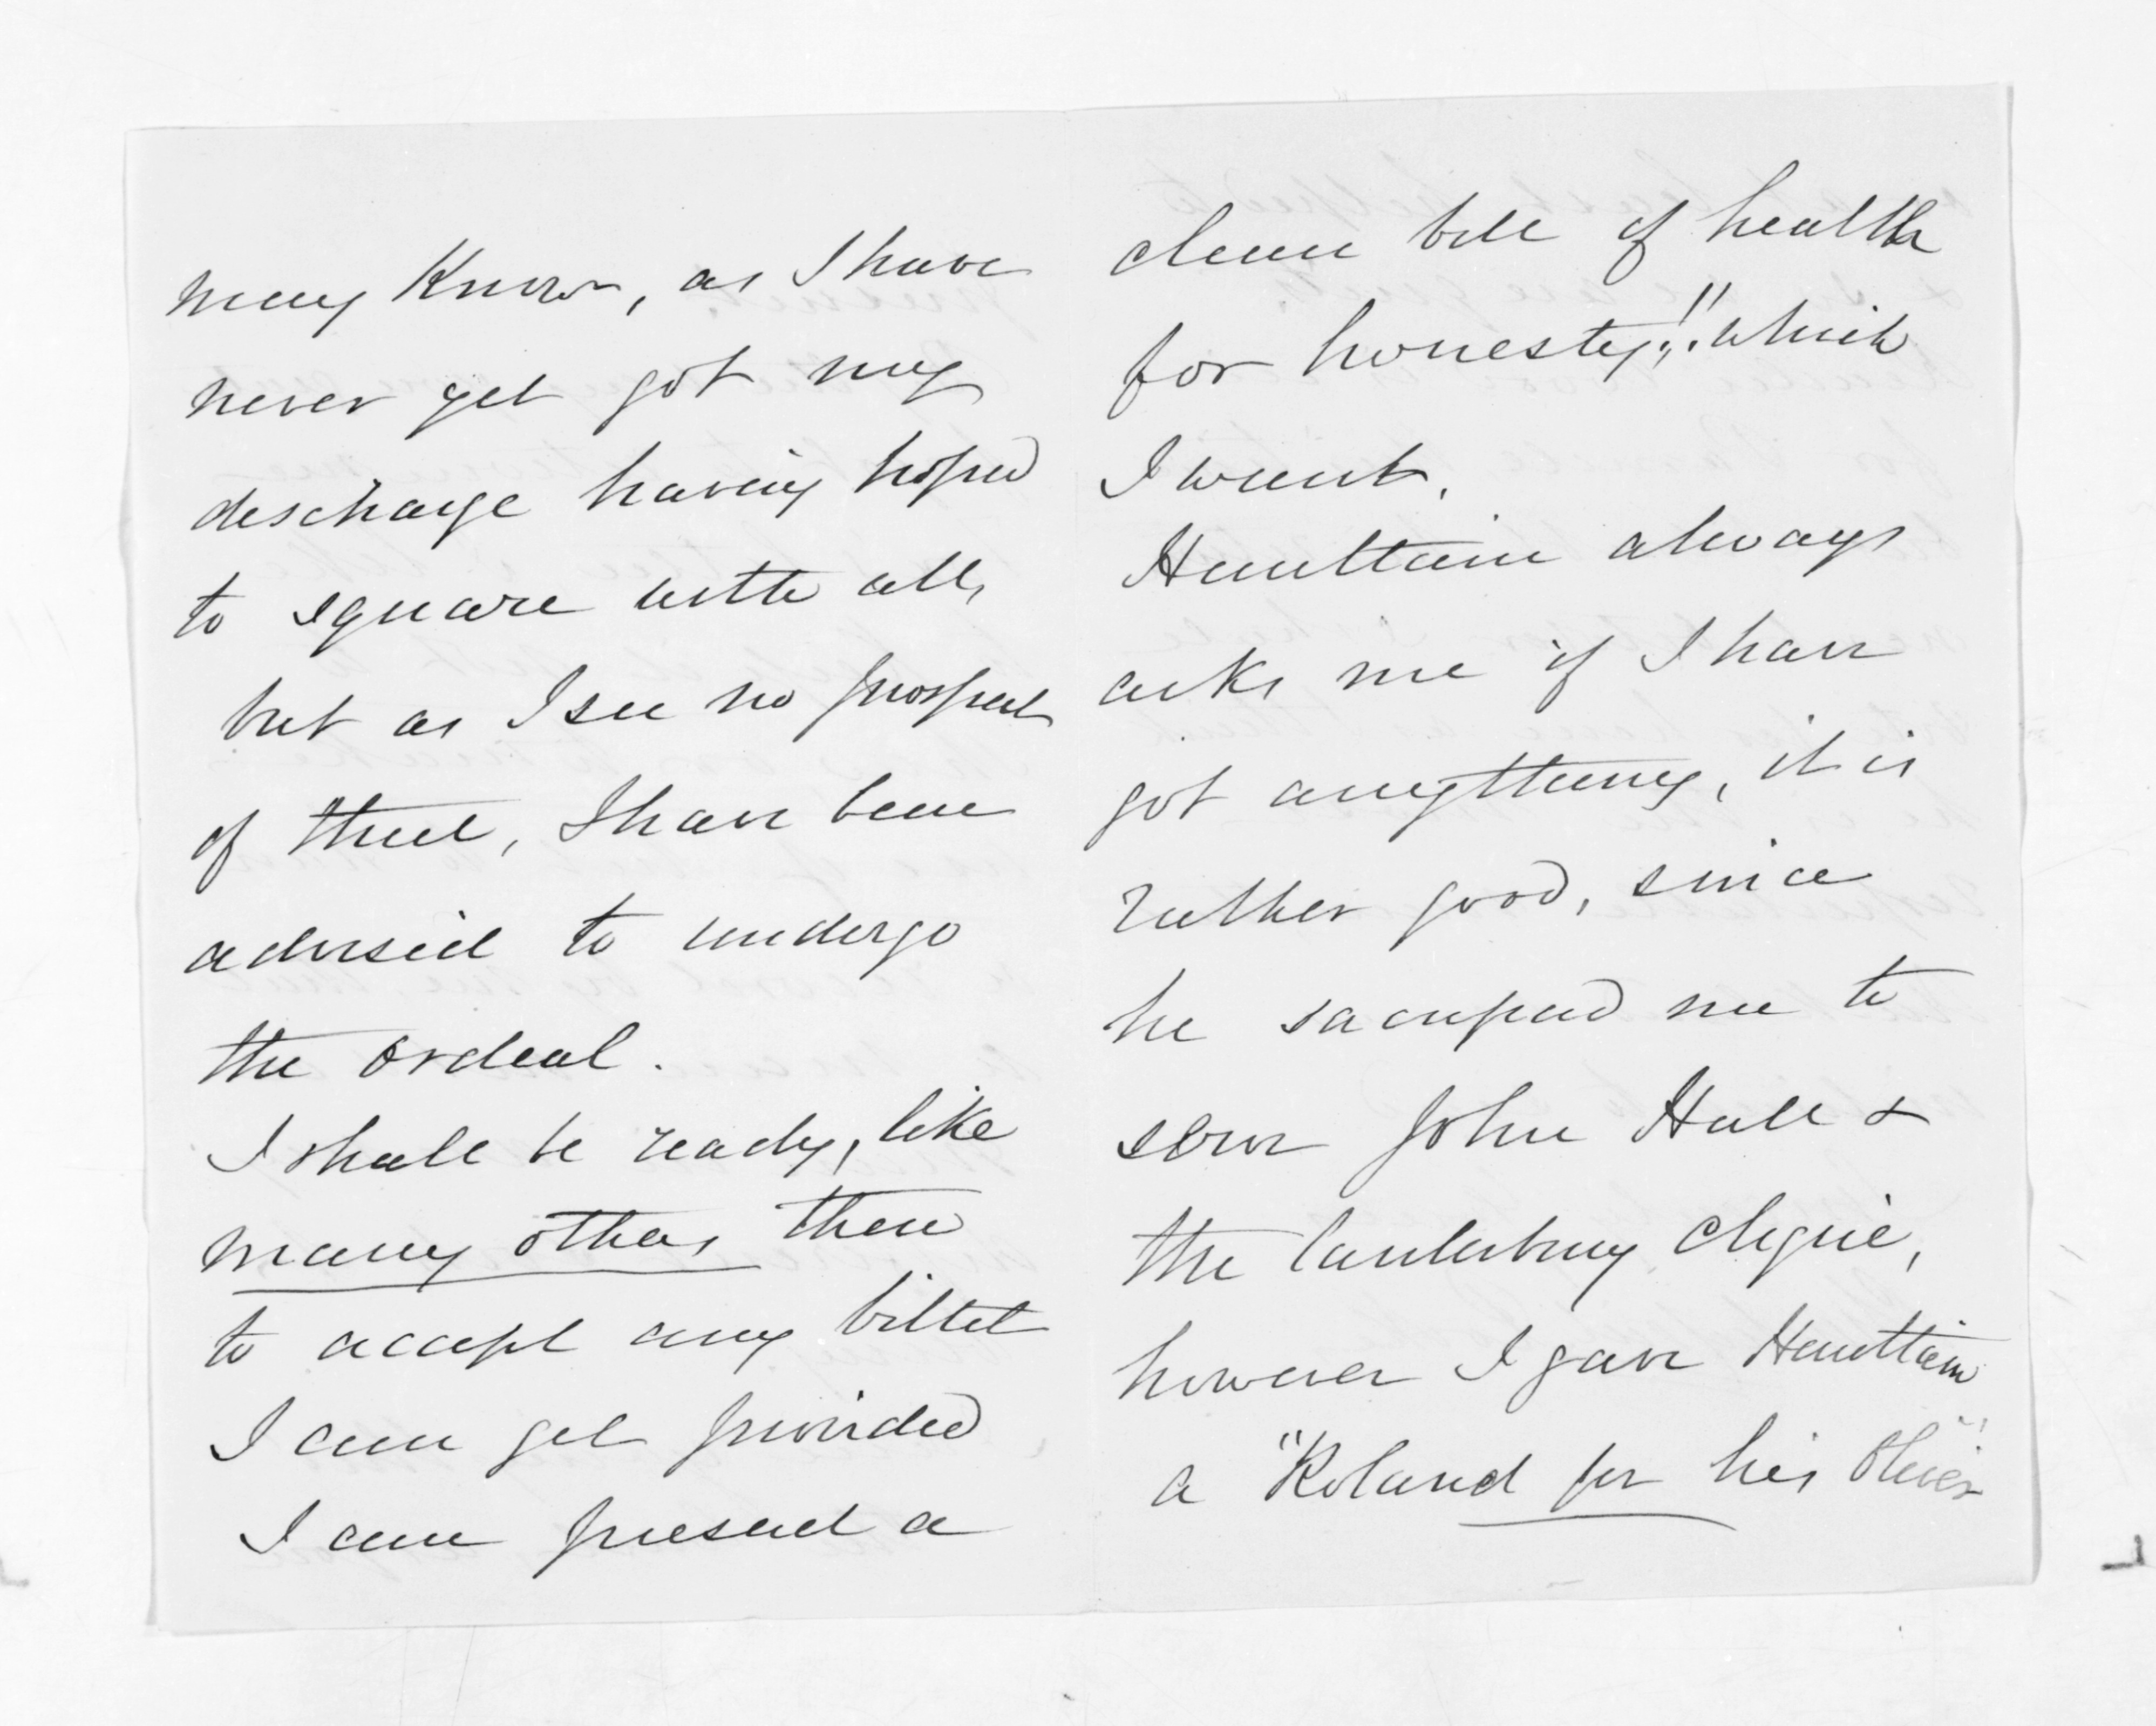 may Know, as I have
never yet got my
discharge having hoped
to square with all,
but as I see no prospect
of that, I have been
advised to undergo
the ordeal.
I shall be ready, like
many others then
to accept any billet
I can get provided
I can present a
clean bill of health
for honesty!! which
I want.
Haultain always
asks me if I have
got anything, it is
rather good, since
he sacrificed me to
John Hall &
the Canterbury clique,
however I gave Haultain
a "Roland for his Oliver"